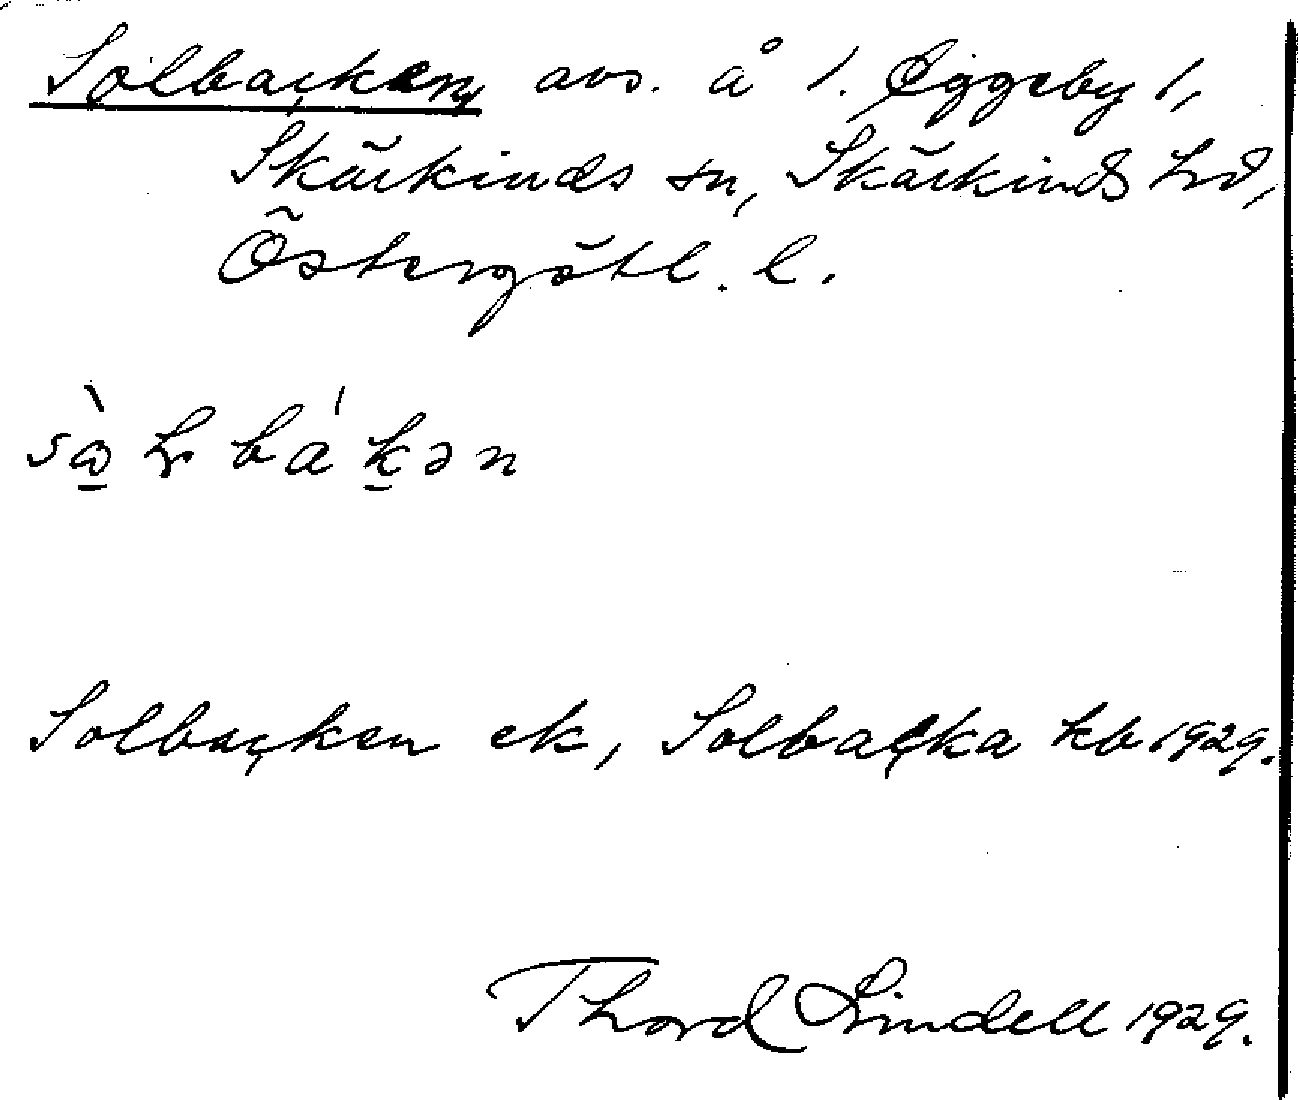 Solbacken, avs. å 1. Eggeby 1,
Skärkinds sn, Skärkinds hd,
Östergötl. l.
Solbacken ek, Solbacka kb 1929.
Thord Lindell 1929.